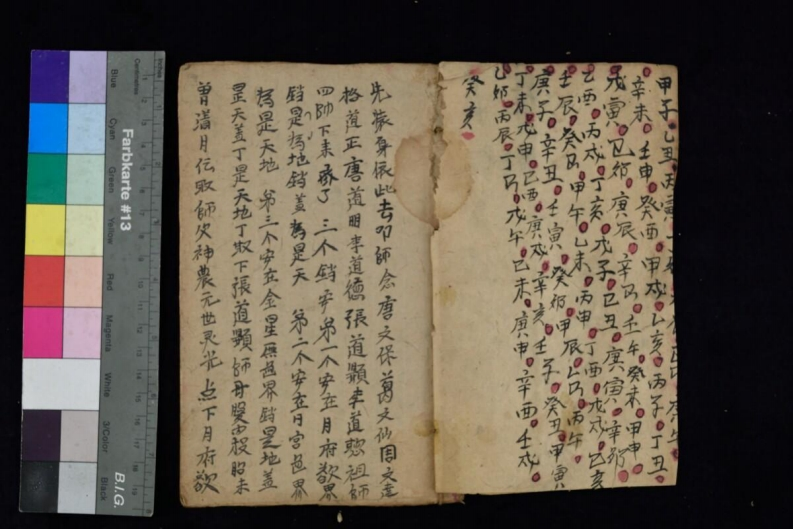 甲子 乙丑 丙寅
辛未 壬申 癸酉 甲戌 乙亥 丙子 丁丑
戊寅 己卯 庚辰 辛巳 壬午 癸未 甲申
乙酉 丙戌 丁亥 戊子 己丑 庚寅 辛卯
壬辰 癸巳 甲午 乙未 丙申 丁酉 戊戌 己亥
庚子 辛丑 壬寅 癸卯 甲辰 乙巳 丙午
丁未 戊申 己酉 庚戌 辛亥 壬子 癸丑 甲寅
乙卯 丙辰 丁巳 戊午 己未 庚申 辛酉 壬戌
癸亥
先藏身依此去叩師念唐文保葛文仙周文達
格道正唐道明李道德張道顯李道聰祖師
四帥下來了 三个鎖 第一个安在月府欲界
鎖是地鎖蓋是天 第二个安在日宮色界
是天地 第三个安在金星無色界鎖是地蓋
是天蓋丁是天地丁 下張道顯師母 投胎未
曾滿月 師父神農元世灵光 点下月府欲
Farbkarte #13
B.I.G.
Inches
Centimetres
Blue
Cyan
Green
Yellow
Red
Magenta
White
3/Color
Black